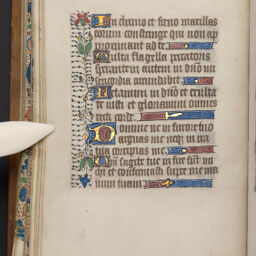 In chamo et freno maxillas
eorum constringe qui non ap
proximant ad te
Multa flagella peccatoris
sperantem autem in dno mi
sericordia circundabit
Letamini in dno et exulta
te iusti et gloriamini omnes
recti corde
Domine ne in furore tuo
arguas me neqz in ira
tua corripias me
Qm sagitte tue infixe sunt mi
chi et confirmasti super me ma
num tuam